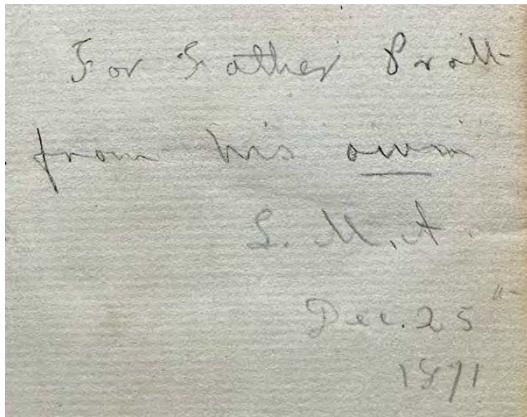 For Father Pratt
from his own
L. M. A.
Dec. 25"
1871